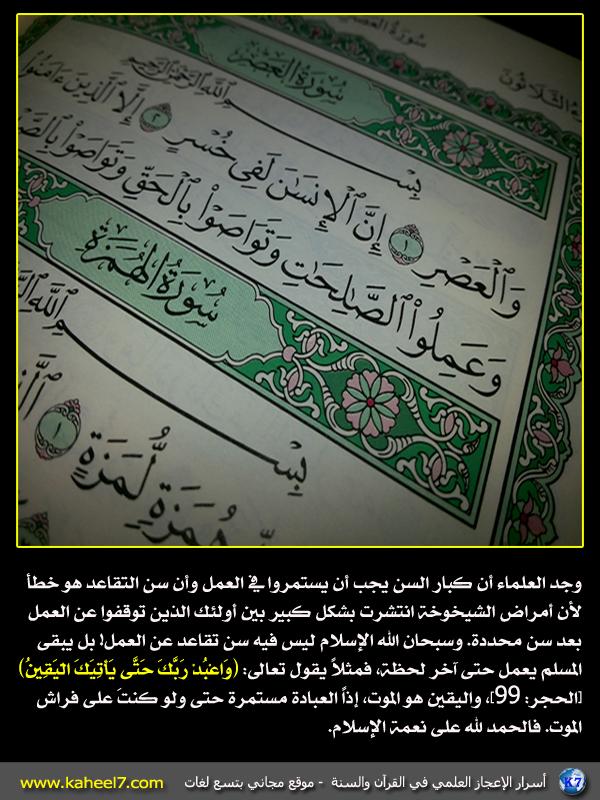 سُورَةُ العَصْرِ
الثَّلَاثُونَ
سُورَةُ العَصْرِ
بِسْمِ ٱللَّهِ ٱلرَّحْمَٰنِ ٱلرَّحِيمِ
وَٱلْعَصْرِ ١ إِنَّ ٱلْإِنسَٰنَ لَفِى خُسْرٍ ٢ إِلَّا ٱلَّذِينَ ءَامَنُوا۟
وَعَمِلُوا۟ ٱلصَّٰلِحَٰتِ وَتَوَاصَوْا۟ بِٱلْحَقِّ وَتَوَاصَوْا۟
سُورَةُ الهُمَزَةِ
بِسْمِ ٱللَّهِ
هُمَزَةٍ لُّمَزَةٍ ١
وجد العلماء أن كبار السن يجب أن يستمروا في العمل وأن سن التقاعد هو خطأ
لأن أمراض الشيخوخة انتشرت بشكل كبير بين أولئك الذين توقفوا عن العمل
بعد سن محددة. وسبحان الله الإسلام ليس فيه سن تقاعد عن العمل! بل يبقى
المسلم يعمل حتى آخر لحظة، فمثلاً يقول تعالى: (وَاعْبُدْ رَبَّكَ حَتَّى يَأْتِيَكَ الْيَقِينُ)
[الحجر: 99]، واليقين هو الموت، إذاً العبادة مستمرة حتى ولو كنتَ على فراش
الموت. فالحمد لله على نعمة الإسلام.
K7 أسرار الإعجاز العلمي في القرآن والسنة - موقع مجاني بتسع لغات www.kaheel7.com